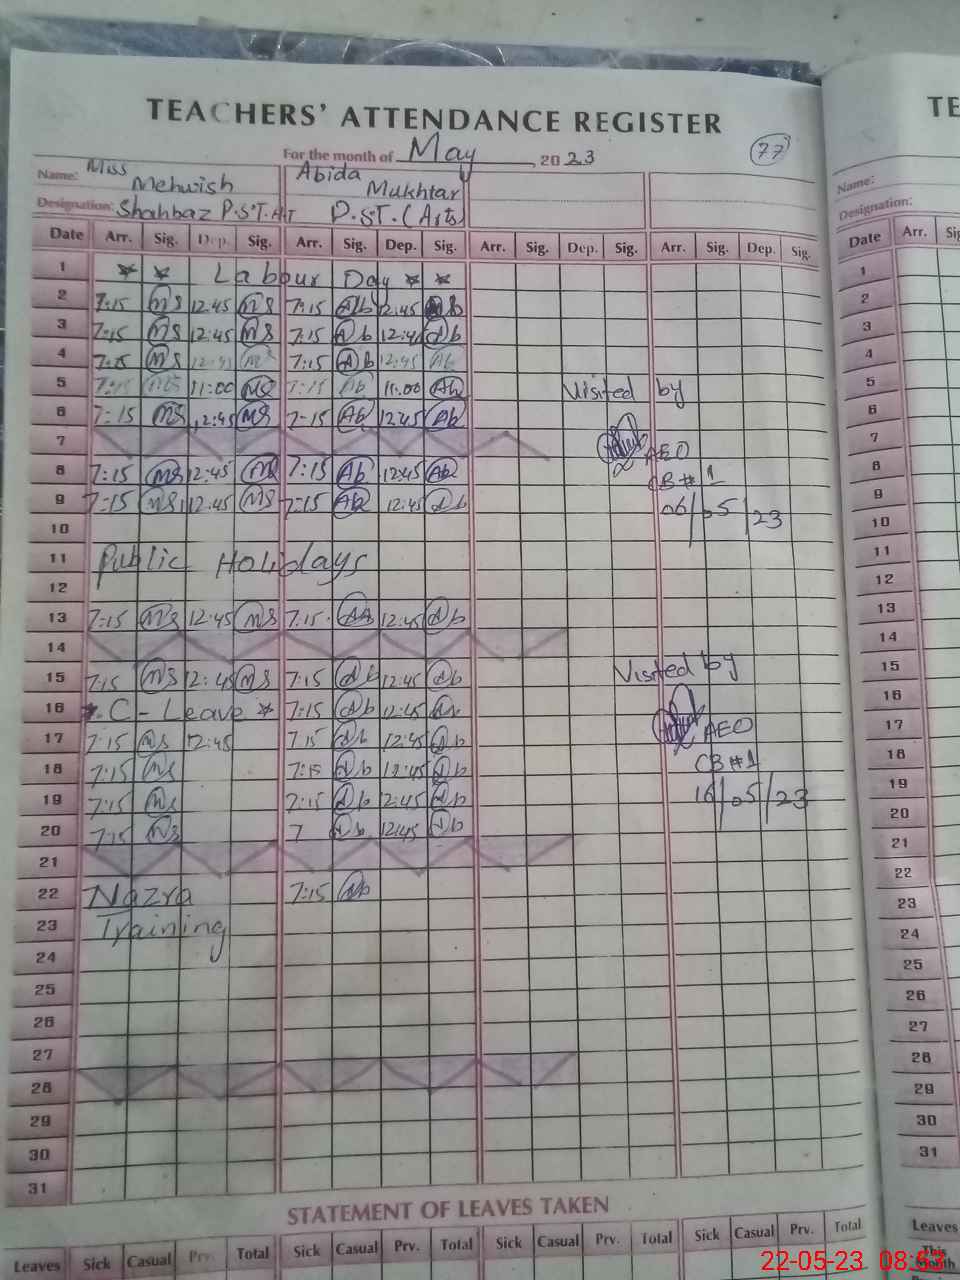 TEACHERS' ATTENDANCE REGISTER
For the month of May, 2023
77
Name: Miss Mehwish
Abida Mukhtar
Designation: Shahbaz P.S.T.
P.S.T. (Arts)
Date Arr. Sig. Dep. Sig. Arr. Sig. Dep. Sig. Arr. Sig. Dep. Sig. Arr. Sig. Dep. Sig.
1 * * Labour Day * *
2 7:15 MS 12:45 MS 7:15 Ab 12:45
3 7:15 MS 12:45 MS 7:15 Ab Ab
4 7:15 MS 12:45 7:15 Ab 12:45 Ab
5 11:00 MS 7:15 Ab 11:00 Ab
Visited by
6 7:15 MS 12:45 MS 7:15 Ab 12:45 Ab
7
AEO
8 7:15 MS 12:45 MS 7:15 Ab 12:45 Ab
CB # 1
9 7:15 MS 12:45 MS 7:15 Ab 12:45 Ab
06/05/23
10
11 Public Holidays
12
13 7:15 MS 12:45 MS 7:15 Ab 12:45 Ab
14
15 7:15 MS 12:45 MS 7:15 Ab 12:45 Ab
Visited by
16 * C-Leave * 7:15 Ab 12:45 Ab
17 7:15 MS 12:45 7:15 Ab 12:45 Ab
AEO
18 7:15 MS 7:15 Ab 12:45 Ab
CB #1
19 7:15 MS 7:15 Ab 12:45 Ab
16/05/23
20 7:15 MS 7 Ab 12:45 Ab
21
22 Nazra 7:15 Ab
23 Training
24
25
26
27
28
29
30
31
STATEMENT OF LEAVES TAKEN
Leaves Sick Casual Prv. Total Sick Casual Prv. Total Sick Casual Prv. Total Sick Casual Prv. Total
TE
Name:
Designation:
Date Arr.
1
2
3
4
5
6
7
8
9
10
11
12
13
14
15
16
17
18
19
20
21
22
23
24
25
26
27
28
29
30
31
Leaves
This Month
22-05-23